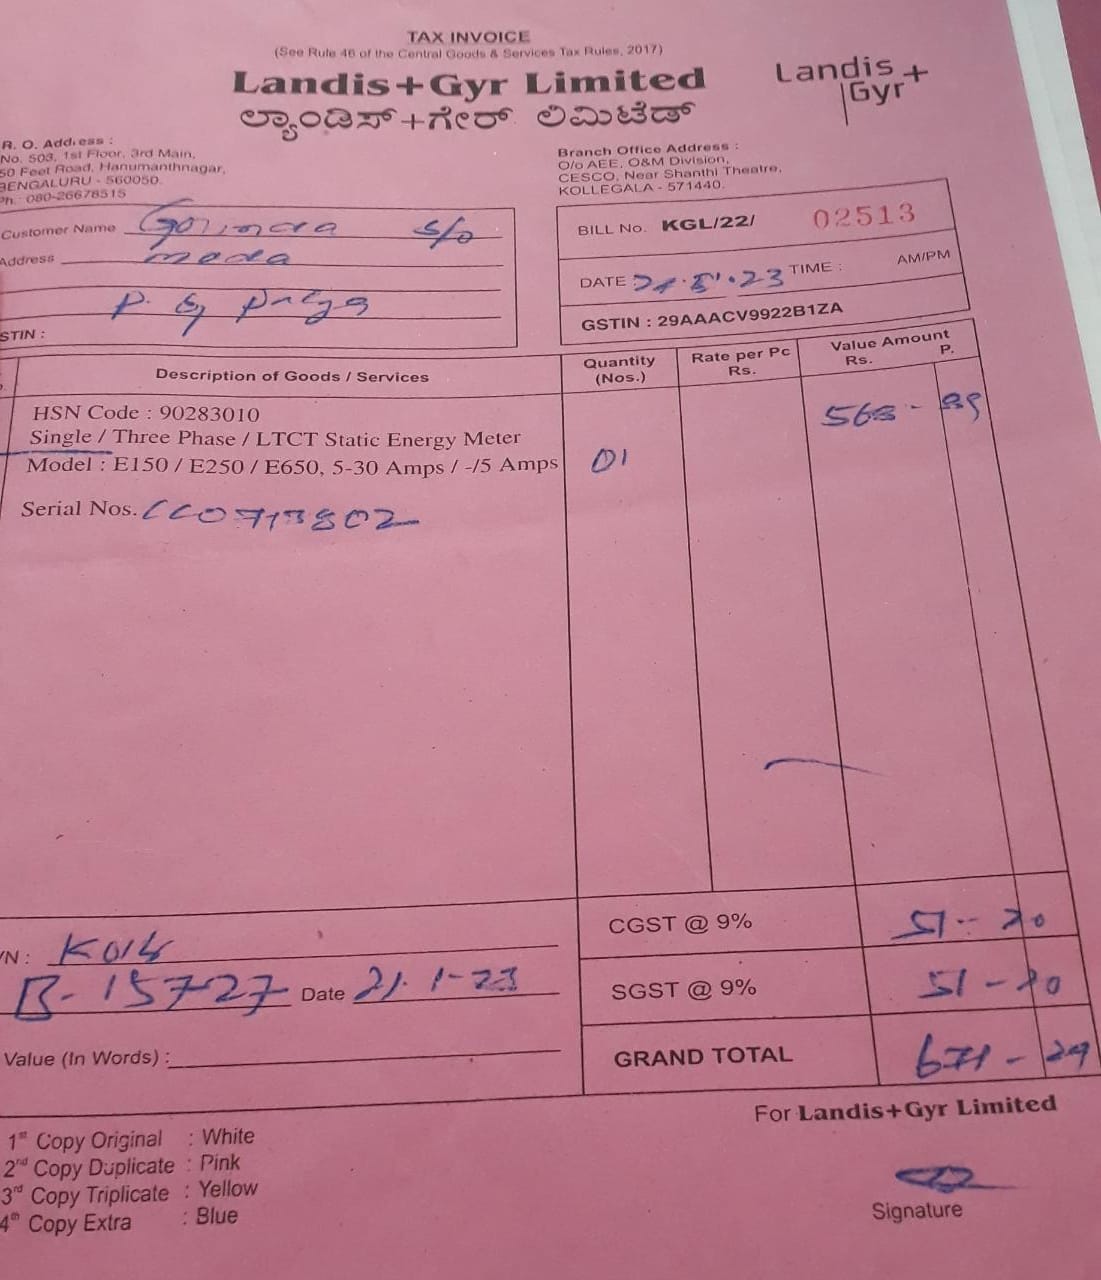 TAX INVOICE
(See Rule 46 of the Central Goods & Services Tax Rules, 2017)
Landis+Gyr Limited
ಲ್ಯಾಂಡಿಸ್+ಗೇರ್ ಲಿಮಿಟೆಡ್
Landis+
Gyr
R. O. Address :
No. 503, 1st Floor, 3rd Main,
50 Feet Road, Hanumanthnagar,
BENGALURU - 560050.
Ph.: 080-26678515
Branch Office Address :
O/o AEE, O&M Division,
CESCO, Near Shanthi Theatre,
KOLLEGALA - 571440.
Customer Name S/o
Address
P. G Palya
STIN :
BILL No. KGL/22/ 02513
DATE 23 TIME : AM/PM
GSTIN : 29AAACV9922B1ZA
Description of Goods / Services
Quantity
(Nos.)
Rate per Pc
Rs.
Value Amount
Rs. P.
HSN Code : 90283010
Single / Three Phase / LTCT Static Energy Meter
Model : E150 / E250 / E650, 5-30 Amps / -/5 Amps
01
568 - 89
Serial Nos.
/N :
B-15727 Date 21.1-23
Value (In Words) :
CGST @ 9% 51 - 20
SGST @ 9% 51 - 20
GRAND TOTAL 671 - 29
For Landis+Gyr Limited
Signature
1st Copy Original : White
2nd Copy Duplicate : Pink
3rd Copy Triplicate : Yellow
4th Copy Extra : Blue